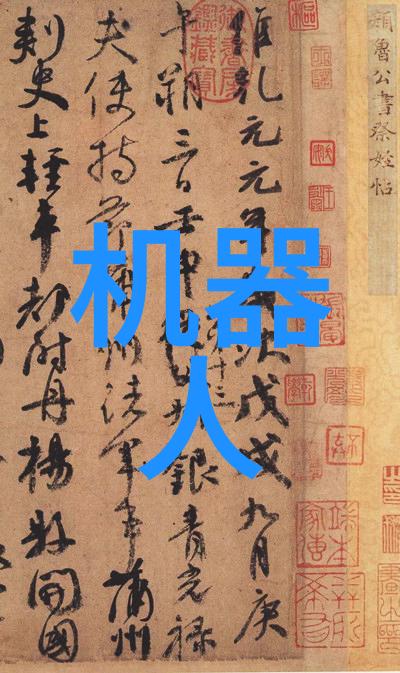 顏魯公書祭姪帖
維乾元元年歲次戊戌九月庚
午朔三日壬申第十三叔銀青光祿
夫使持節蒲州諸軍事蒲州
刺史上輕車都尉丹楊縣開國
机器
人